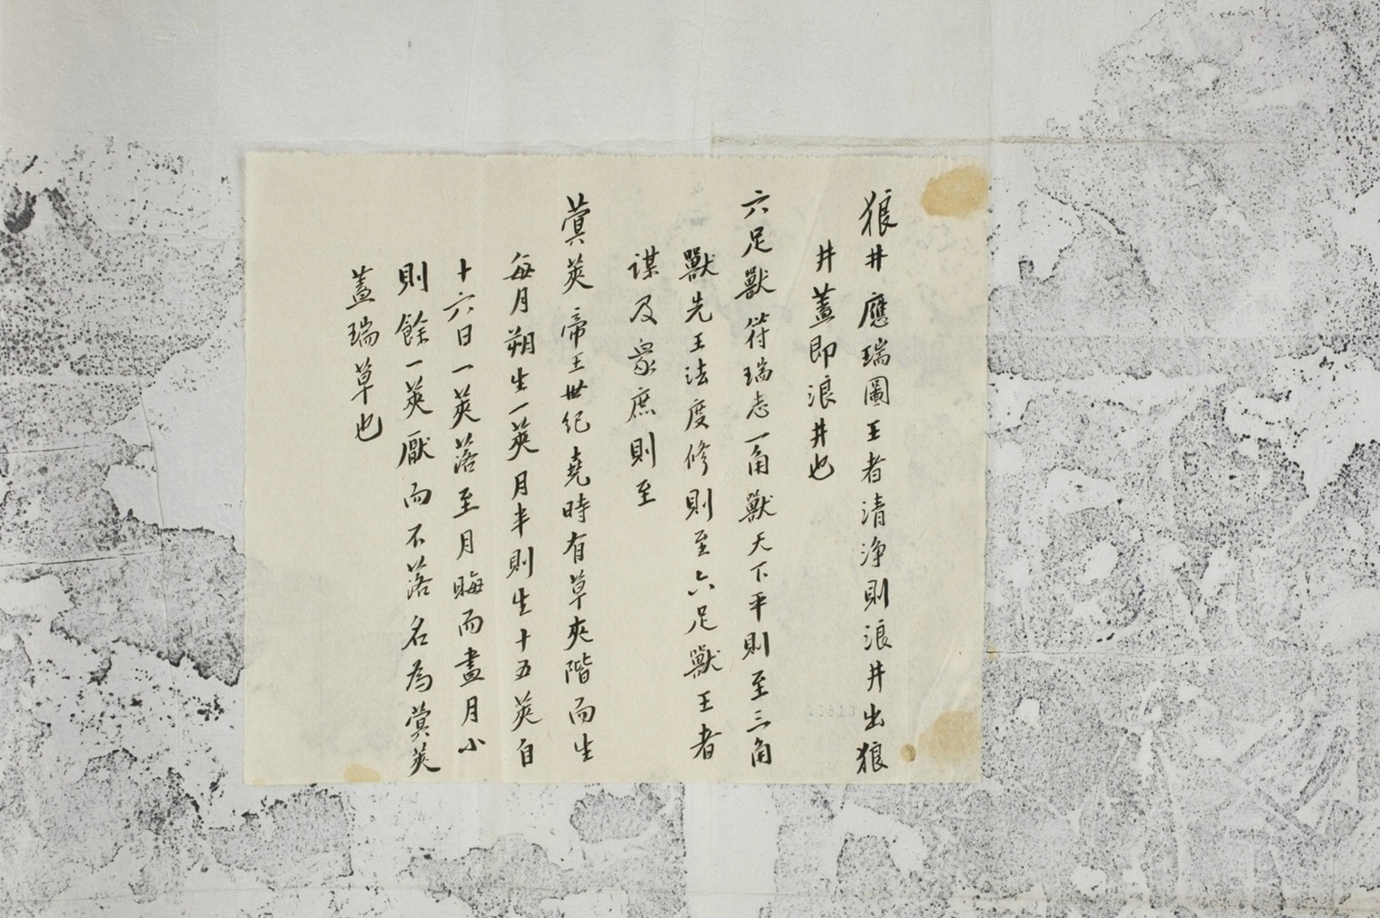 狼井 應瑞圖王者清淨則浪井出狼
井蓋即浪井也
六足獸 符瑞志一角獸天下平則至三角
獸先王法度修則至六足獸王者
謀及眾庶則至
蓂莢 帝王世紀堯時有草夾階而生
每月朔生一莢月半則生十五莢自
十六日一莢落至月晦而盡月小
則餘一莢厭而不落名為蓂莢
蓋瑞草也